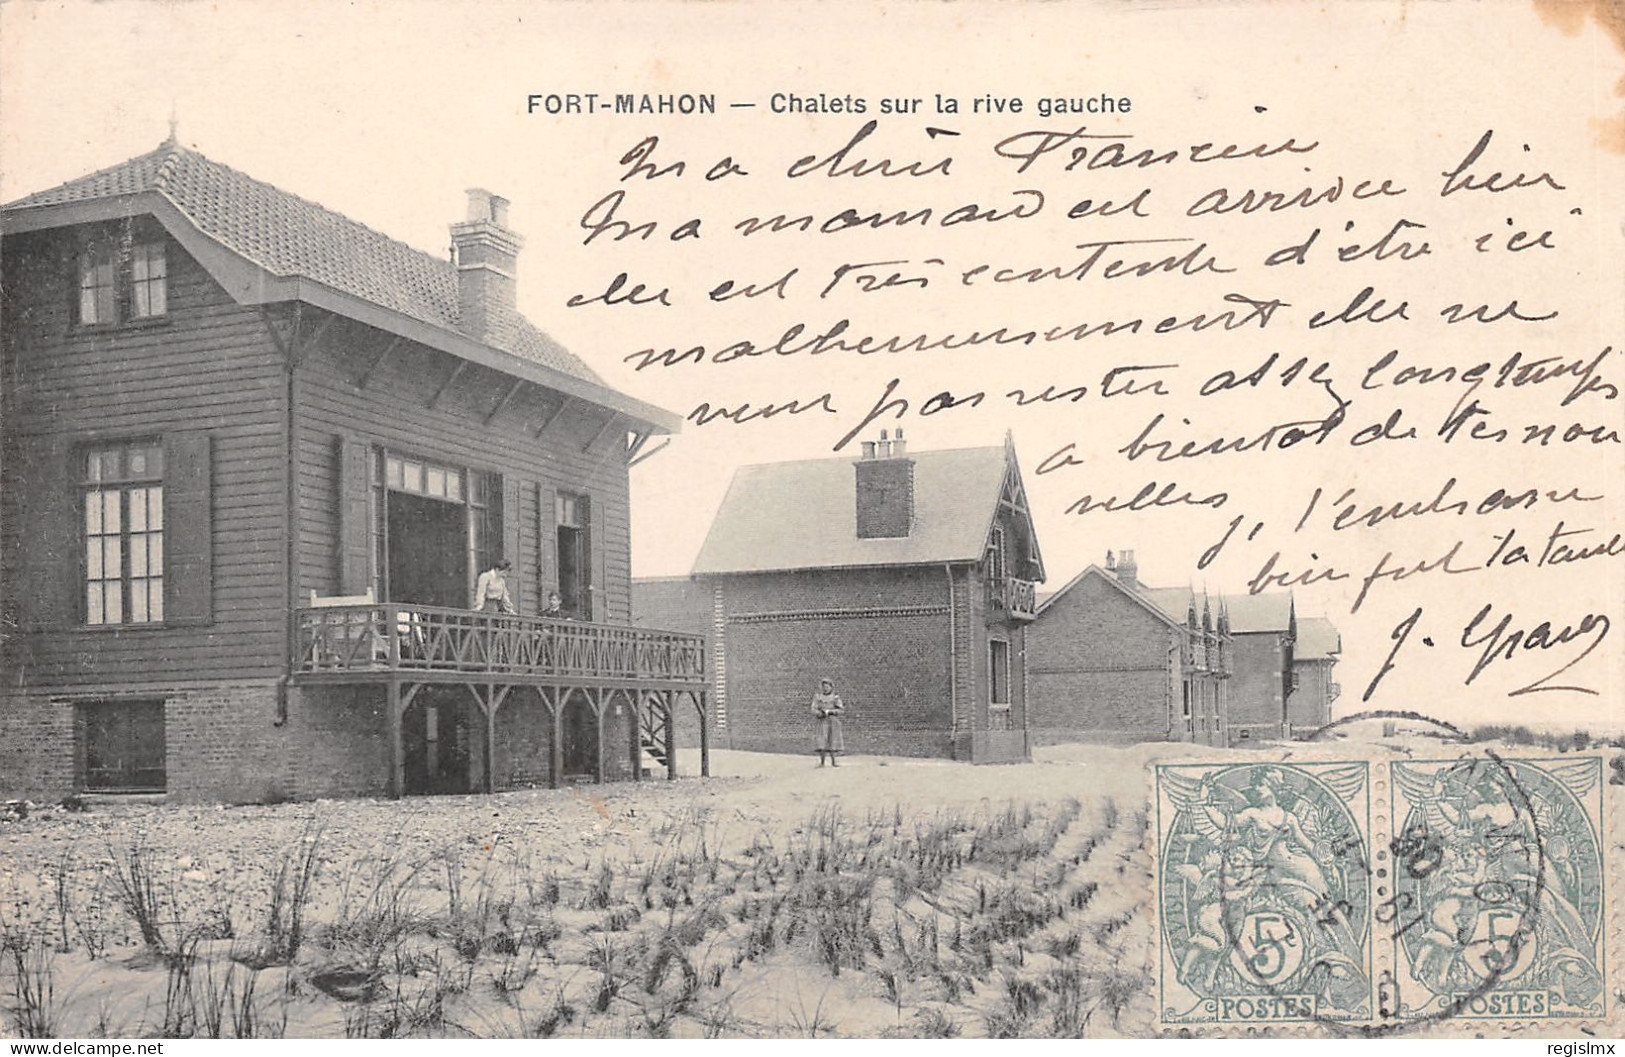 FORT-MAHON — Chalets sur la rive gauche
Ma chère Francin
Ma maman est arrivée hier
elle est très contente d'être ici
malheureusement elle ne
veut pas rester assez longtemps
a bientot de tes nou
velles, je t'embrasse
bien fort ta tante
J.
5 5
POSTES POSTES
www.delcampe.net
regislmx